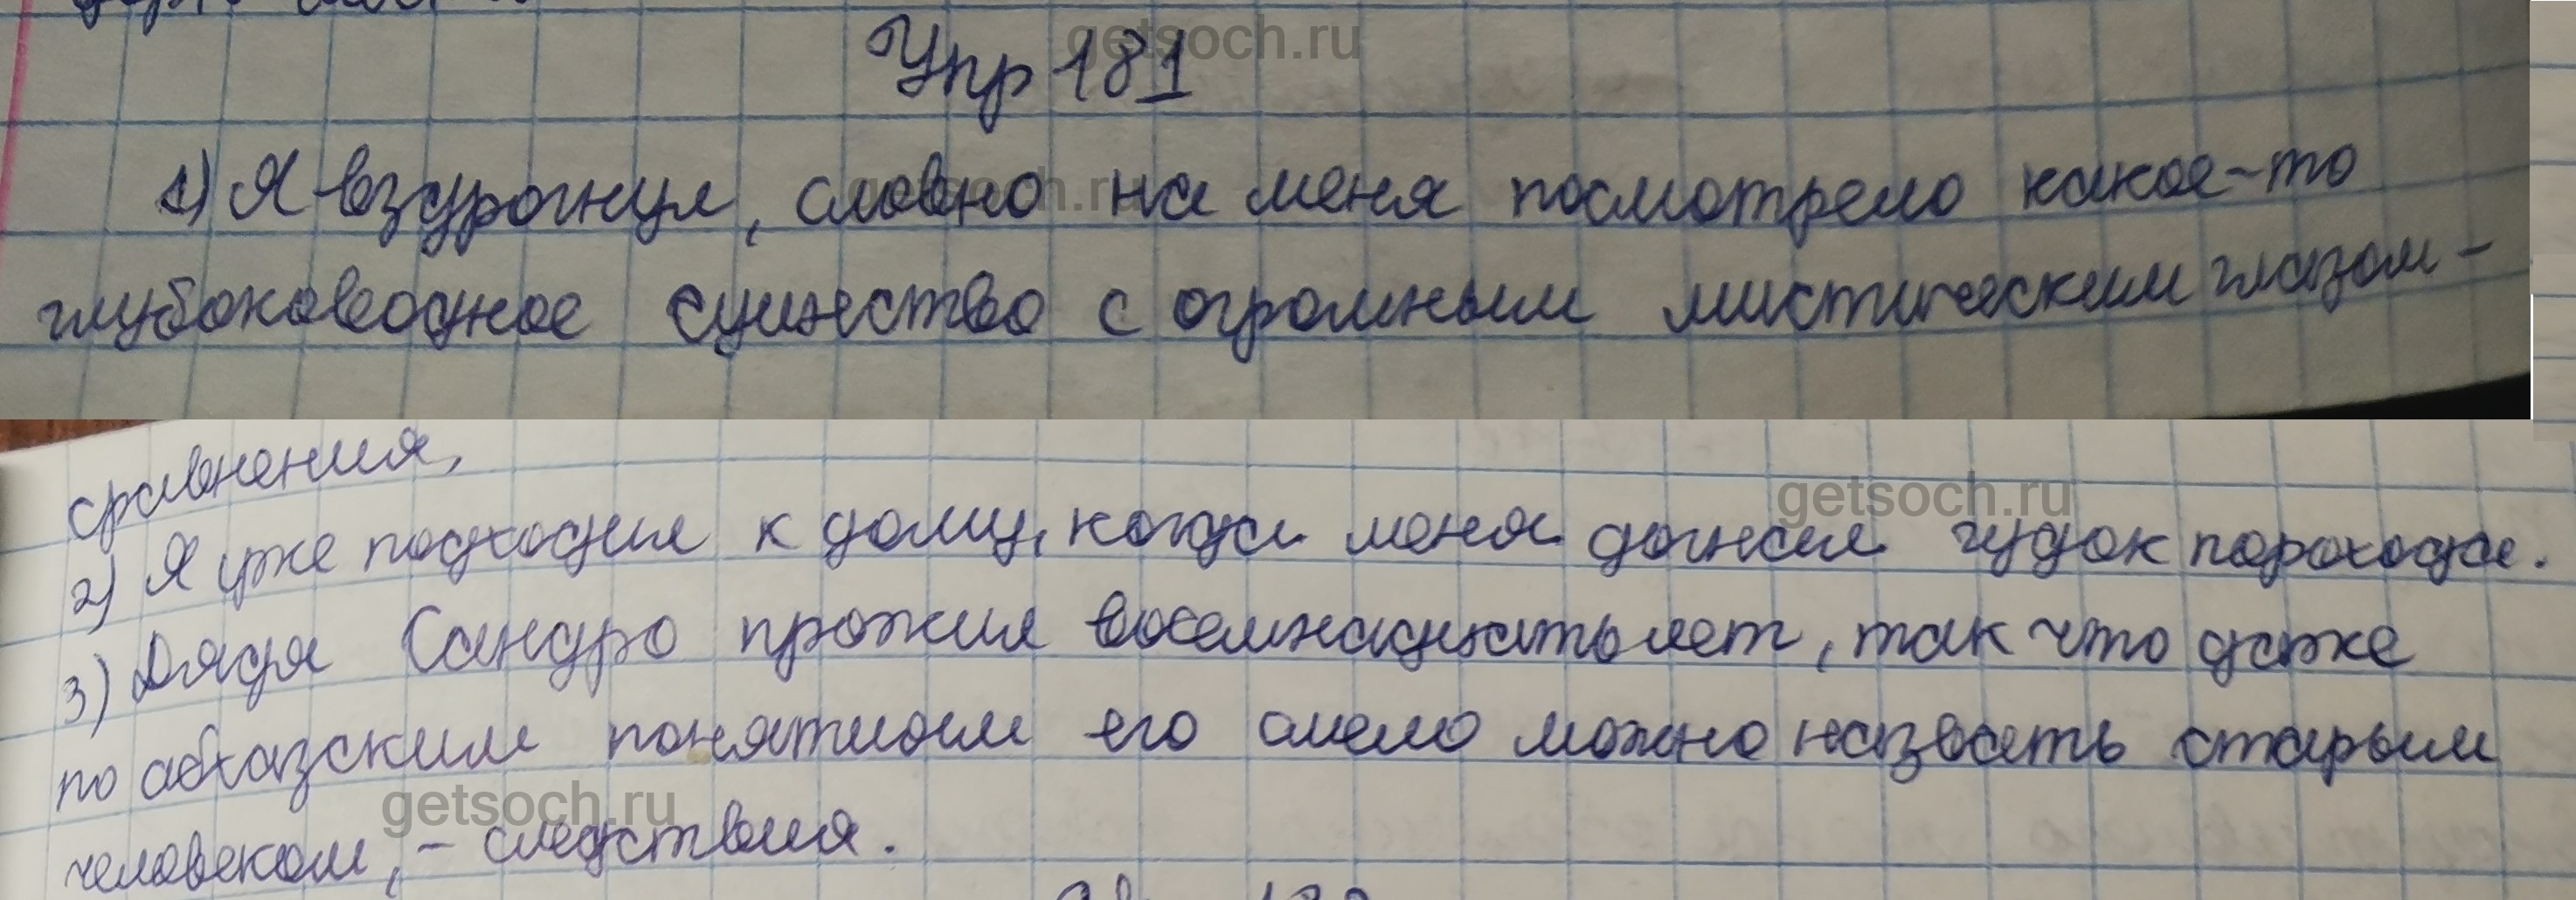 Упр 181
1) Я вздрогнул, словно на меня посмотрело какое-то
глубоководное существо с огромным мистическим глазом -
сравнения,
2) Я уже подходил к дому, когда меня догнал гудок парохода.
3) Дядя Сандро прожил восемнадцать лет, так что даже
по абхазским понятиям его смело можно назвать старым
человеком, - следствия.
getsoch.ru
getsoch.ru
getsoch.ru
getsoch.ru